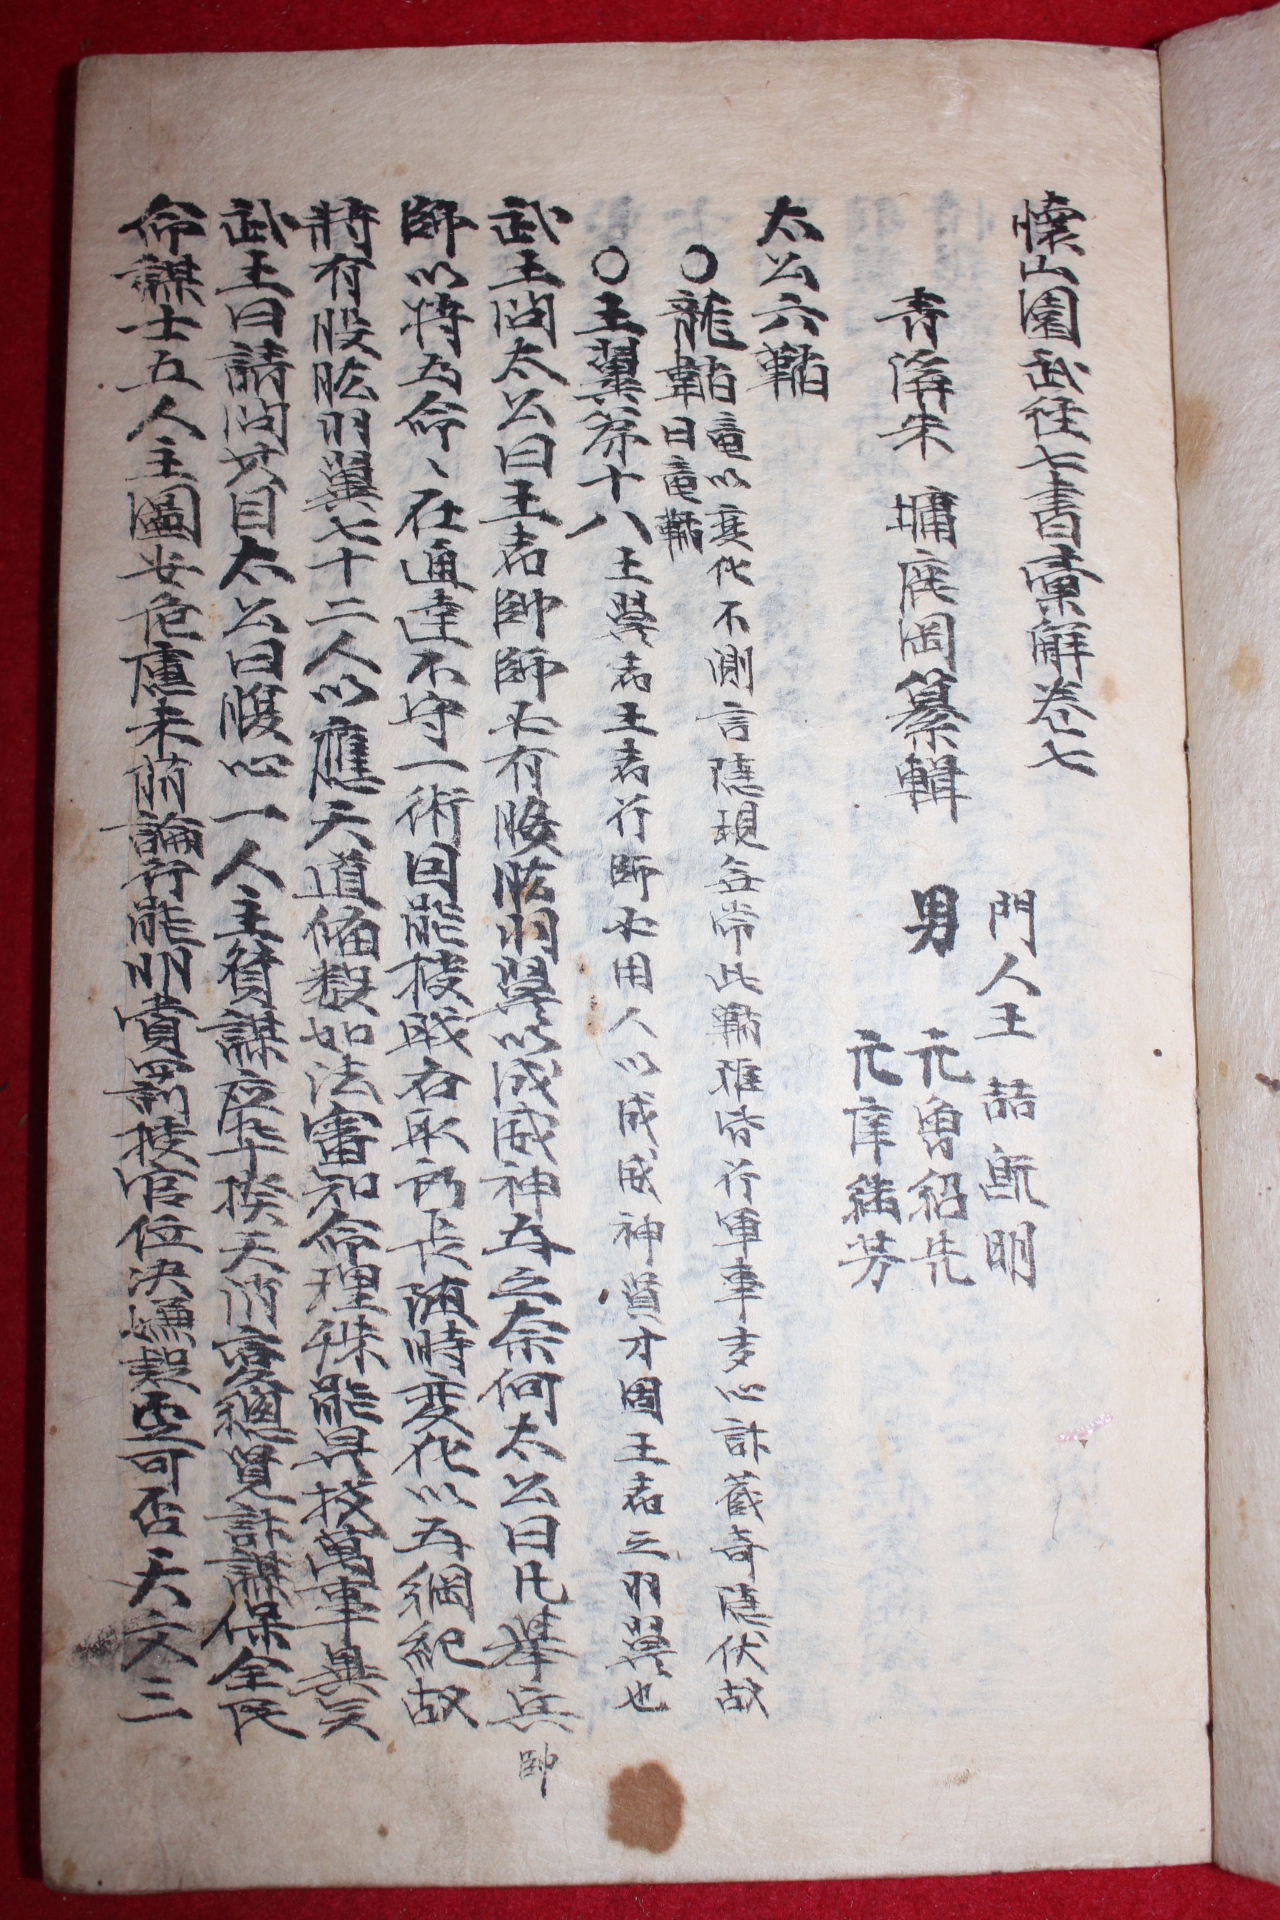 懷山園武經七書彙解卷七
門人王 喆旣明
青溝朱 墉鹿岡纂輯 男 元曾紹先
元庠繡芳
太公六韜
○龍韜竜以変化不測言隱現無常此韜雖皆行軍事多心計蓄奇隱伏故
韋曰竜韜
○王翼第十八王翼者王者行師必用人以成威神賢才固王者之羽翼也
武王問太公曰王者帥師必有股肱羽翼以成威神為之奈何太公曰凡擧兵
帥
師以將為命〻在通達不守一術因能授職各取所長隨時変化以為綱紀故
將有股肱羽翼七十二人以應天道俻数如法審知命理殊能異技萬事畢矣
武王曰請問其目太公曰腹心一人主賛謀應卒揆天消變總覽計謀保全民
命謀士五人主圖安危慮未萌論行能明賞罰授官位決嫌疑定可否天文三